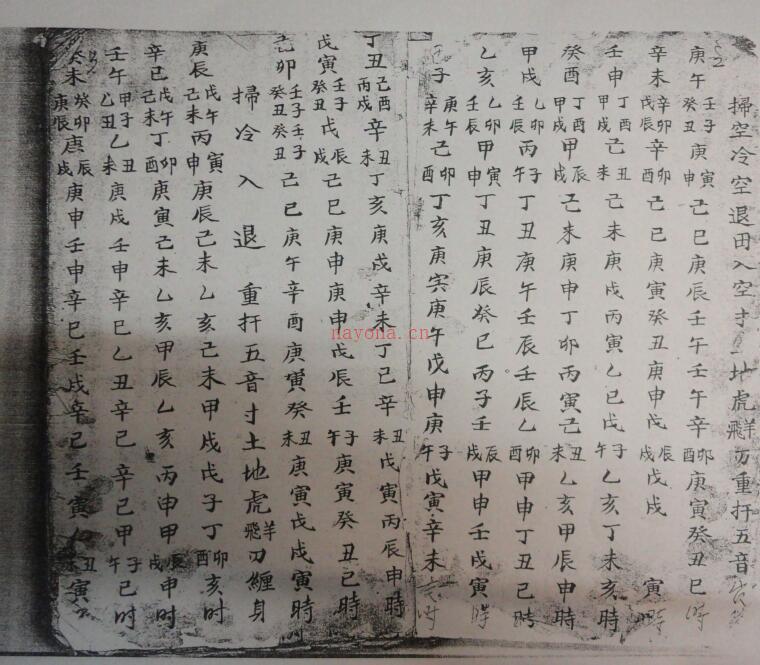 掃空冷空退田入空寸一地虎飛羊刃重扦五音
庚午 壬子癸丑 庚寅 己巳庚辰壬午壬午辛 卯酉 庚寅癸丑巳时
辛未 辛卯戊辰 辛 卯酉 己巳庚寅癸丑庚申戊 辰戌 戊戌 寅時
壬申 丁酉甲戌 己 丑未 己未庚戌丙寅乙巳戊 子午 乙亥丁未亥時
癸酉 丁酉甲戌 甲 辰戌 己未庚申丁卯丙寅己 丑未 乙亥甲辰申時
甲戌 乙卯壬辰 丙 子午 丁丑庚午壬辰乙 卯酉 甲申丁丑巳時
乙亥 乙卯壬辰 甲 寅申 丁丑庚辰癸巳丙子壬 辰戌 甲申壬戌寅時
子 庚午辛未 己 卯酉 丁亥庚寅庚午戊申庚 子午 戊寅辛未
丁丑 己酉丙戌 辛 丑未 丁亥庚戌辛未丁己辛 丑未 戊寅丙辰申時
戊寅 壬子癸丑 戊 辰戌 己巳庚申庚申戊辰壬 子午 庚寅癸丑巳時
己卯 壬子癸丑 壬子癸丑 己巳庚午辛酉庚寅癸 丑未 庚寅戊戌寅時
掃冷入退重扦五音寸土地虎飛羊刃纏身
庚辰 戊午己未 丙 寅申 庚辰己未乙亥己未甲戌戊子丁 卯酉 亥时
辛巳 戊午己未 丁 卯酉 庚寅己未乙亥甲辰乙亥丙申甲 辰戌 申时
壬午 甲子乙丑 乙 丑未 庚戌壬申辛巳乙丑辛巳辛巳甲 子午 巳时
癸未 癸卯庚辰 庚 辰戌 庚申壬申辛巳壬戌辛巳壬寅 丑 寅时
nayona.cn